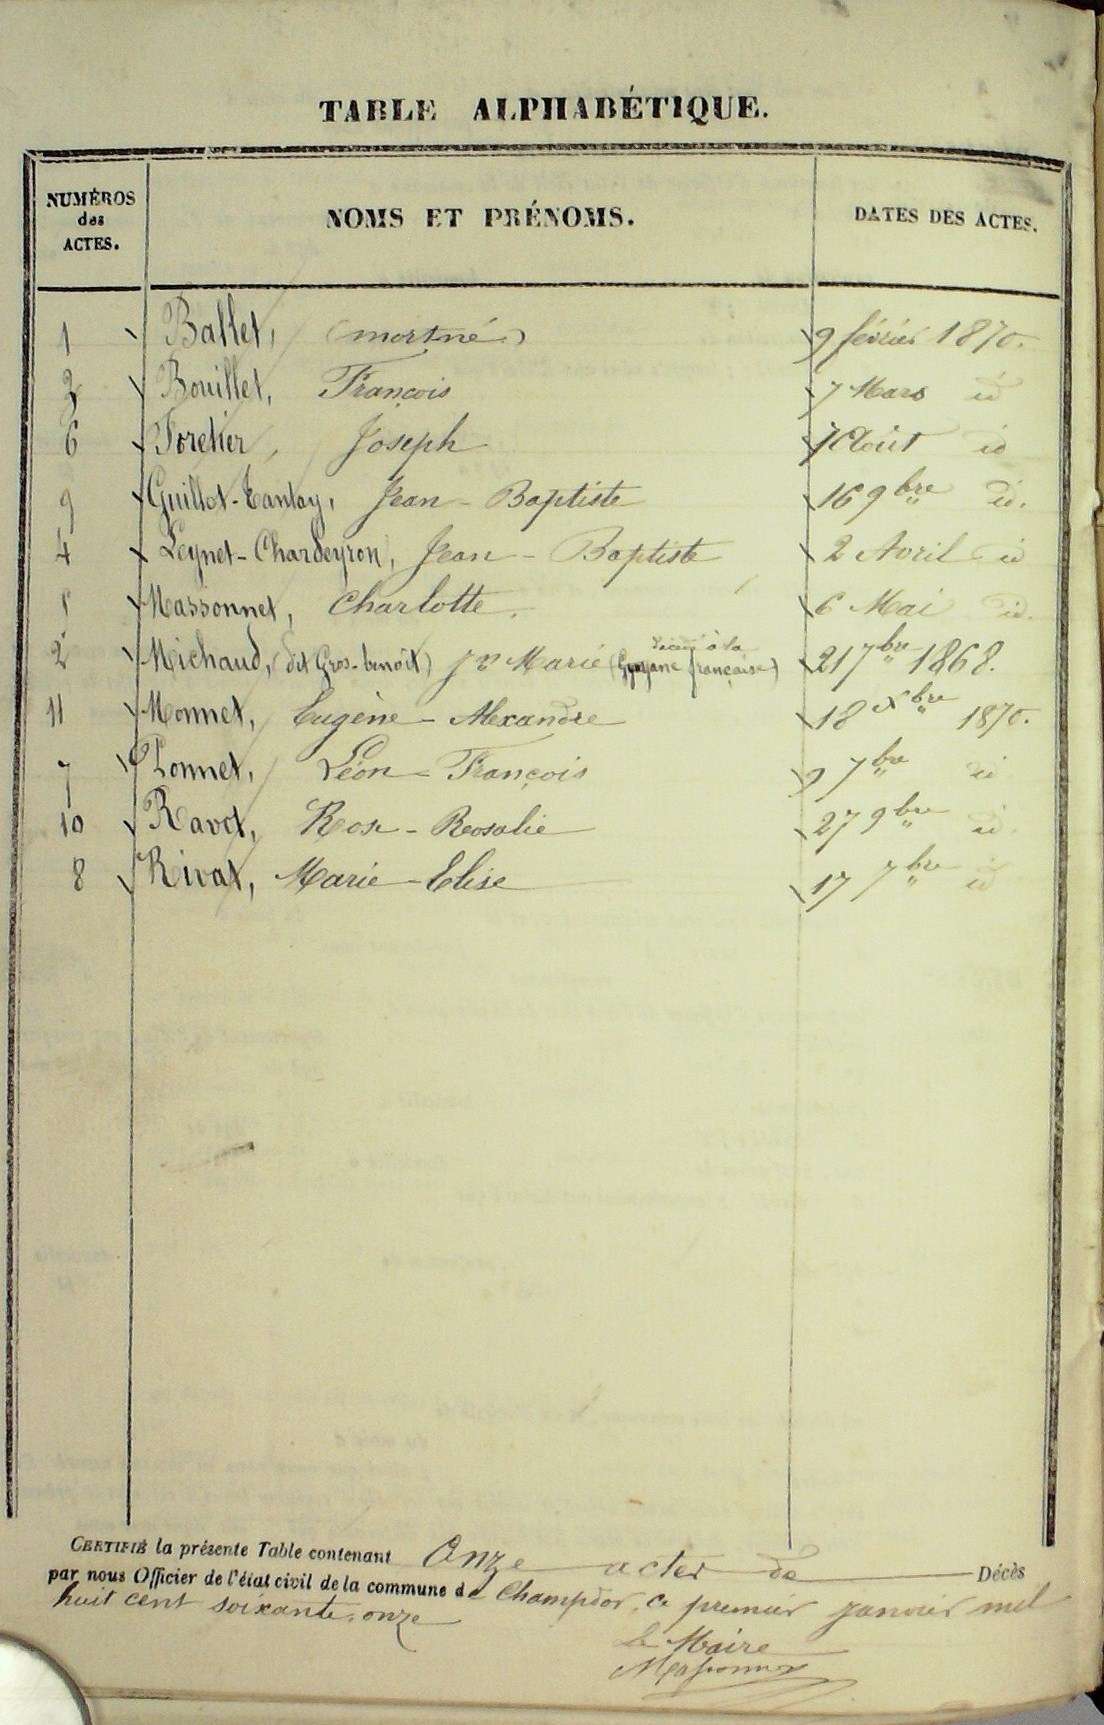 TABLE ALPHABÉTIQUE.
NUMÉROS des ACTES. NOMS ET PRÉNOMS. DATES DES ACTES.
1 Ballet, (mortné) 9 février 1870.
3 Bouillet, François 7 Mars id
6 Foretier, Joseph 7 Août id
9 Guillot-Tantay, Jean-Baptiste 16 9bre id.
4 Leynet-Chardeyron, Jean-Baptiste 2 Avril id
5 Massonnet, Charlotte. 6 Mai id.
2 Michaud, (dit Gros-benoît) Jh Marie (décédé à la Guyane française) 21 7bre 1868.
11 Monnet, Eugène-Alexandre 18 Xbre 1870.
7 Ponnet, Léon-François 9 7bre id
10 Ravot, Rose-Rosalie 27 9bre id.
8 Rivat, Marie-Elise 17 7bre id
CERTIFIÉ la présente Table contenant Onze actes de Décès
par nous Officier de l'état civil de la commune de Champdor, ce premier janvier mil
huit cent soixante-onze
Le Maire
Massonnet